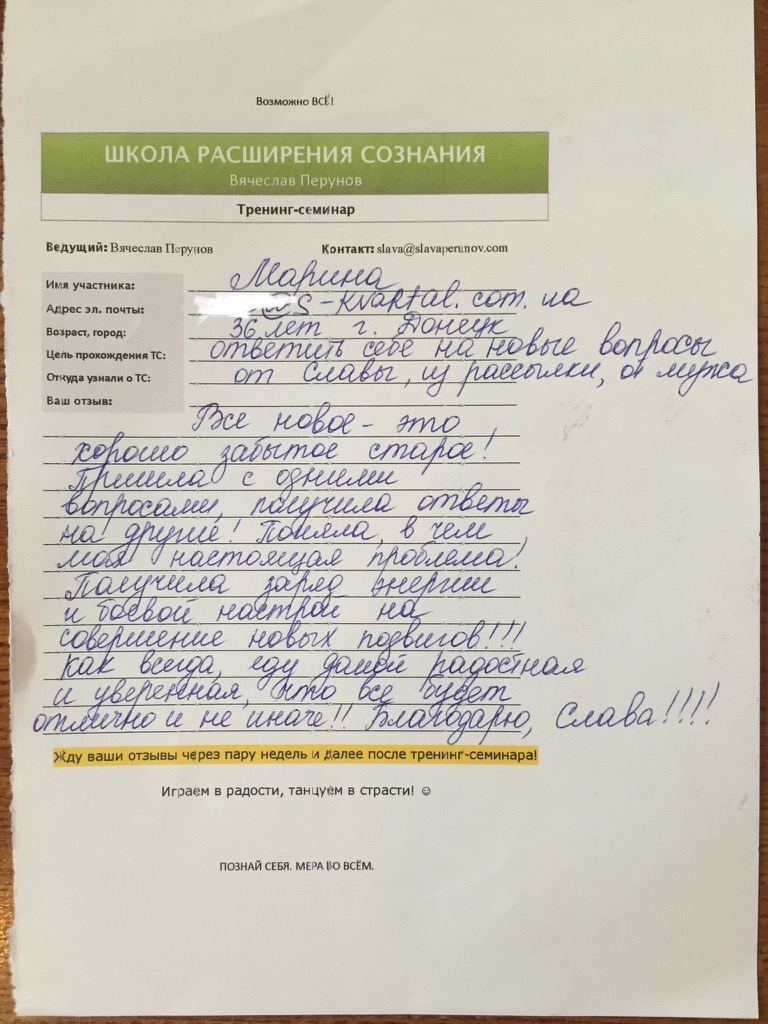 Возможно ВСЁ!
ШКОЛА РАСШИРЕНИЯ СОЗНАНИЯ
Вячеслав Перунов
Тренинг-семинар
Ведущий: Вячеслав Перунов Контакт: slava@slavaperunov.com
Имя участника: Марина
Адрес эл. почты: -kvartal.com.ua
Возраст, город: 36 лет г. Донецк
Цель прохождения ТС: ответить себе на новые вопросы
Откуда узнали о ТС: от Славы, из рассылки, от мужа
Ваш отзыв:
Все новое - это
хорошо забытое старое!
Пришла с одними
вопросами, получила ответы
на другие! Поняла, в чем
моя настоящая проблема!
Получила заряд энергии
и боевой настрой на
совершение новых подвигов!!!
Как всегда, еду домой радостная
и уверенная, что все будет
отлично и не иначе!! Благодарю, Слава!!!!
Жду ваши отзывы через пару недель и далее после тренинг-семинара!
Играем в радости, танцуем в страсти! ☺
ПОЗНАЙ СЕБЯ. МЕРА ВО ВСЁМ.